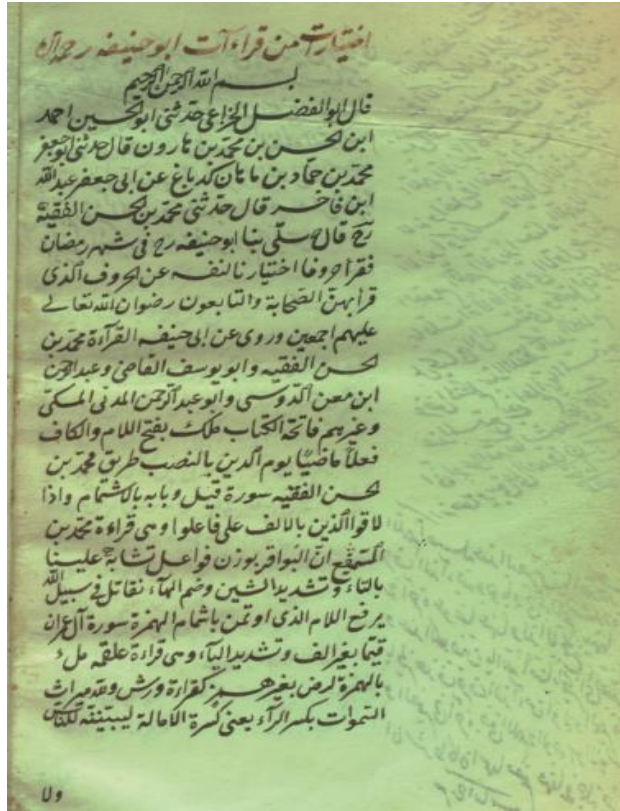 اختيارات من قراءات ابو حنيفه رحمه الله
بسم الله الرحمن الرحيم
قال ابو الفضل الخزاعى حدثنى ابو الحسين احمد
ابن الحسن بن محمد بن هارون قال حدثنى ابو جعفر
محمد بن حماد بن ماهان الدباغ عن ابى جعفر عبد الله
ابن فاخر قال حدثنى محمد بن الحسن الفقيه
رح قال صلى بنا ابو حنيفه رح فى شهر رمضان
فقرأ حروفا اختيارنا لنفسه عن الحروف الذى
قرأ بهن الصحابة والتابعون رضوان الله تعالے
عليهم اجمعين وروى عن ابى حنيفه القرآءة محمد بن
الحسن الفقيه وابو يوسف القاضى وعبد الرحمن
ابن معن الدوسى وابو عبد الرحمن المدنى المكى
وغيرهم فاتحة الكتاب ملك بفتح اللام والكاف
فعلاً ماضيًا يوم الدين بالنصب طريق محمد بن
الحسن الفقيه سورة قيل وبابه بالاشمام واذا
لاقوا الذين بالالف على فاعلوا وهى قراءة محمد بن
السميفع ان البواقر بوزن فواعل تشابه علينا
بالتاء وتشديد الشين وضم الهاء نقاتل فى سبيل الله
برفع اللام الذى اوتمن باشمام الهمزة سورة آل عمران
قيما بغير الف وتشديد اليآء وهى قراءة علقمه ملء
بالهمزة لرض بغير همز كقراءة ورش ولله ميراث
السموات بكسر الرآء يعنى كسرة الامالة ليبيننه للناس
ولا